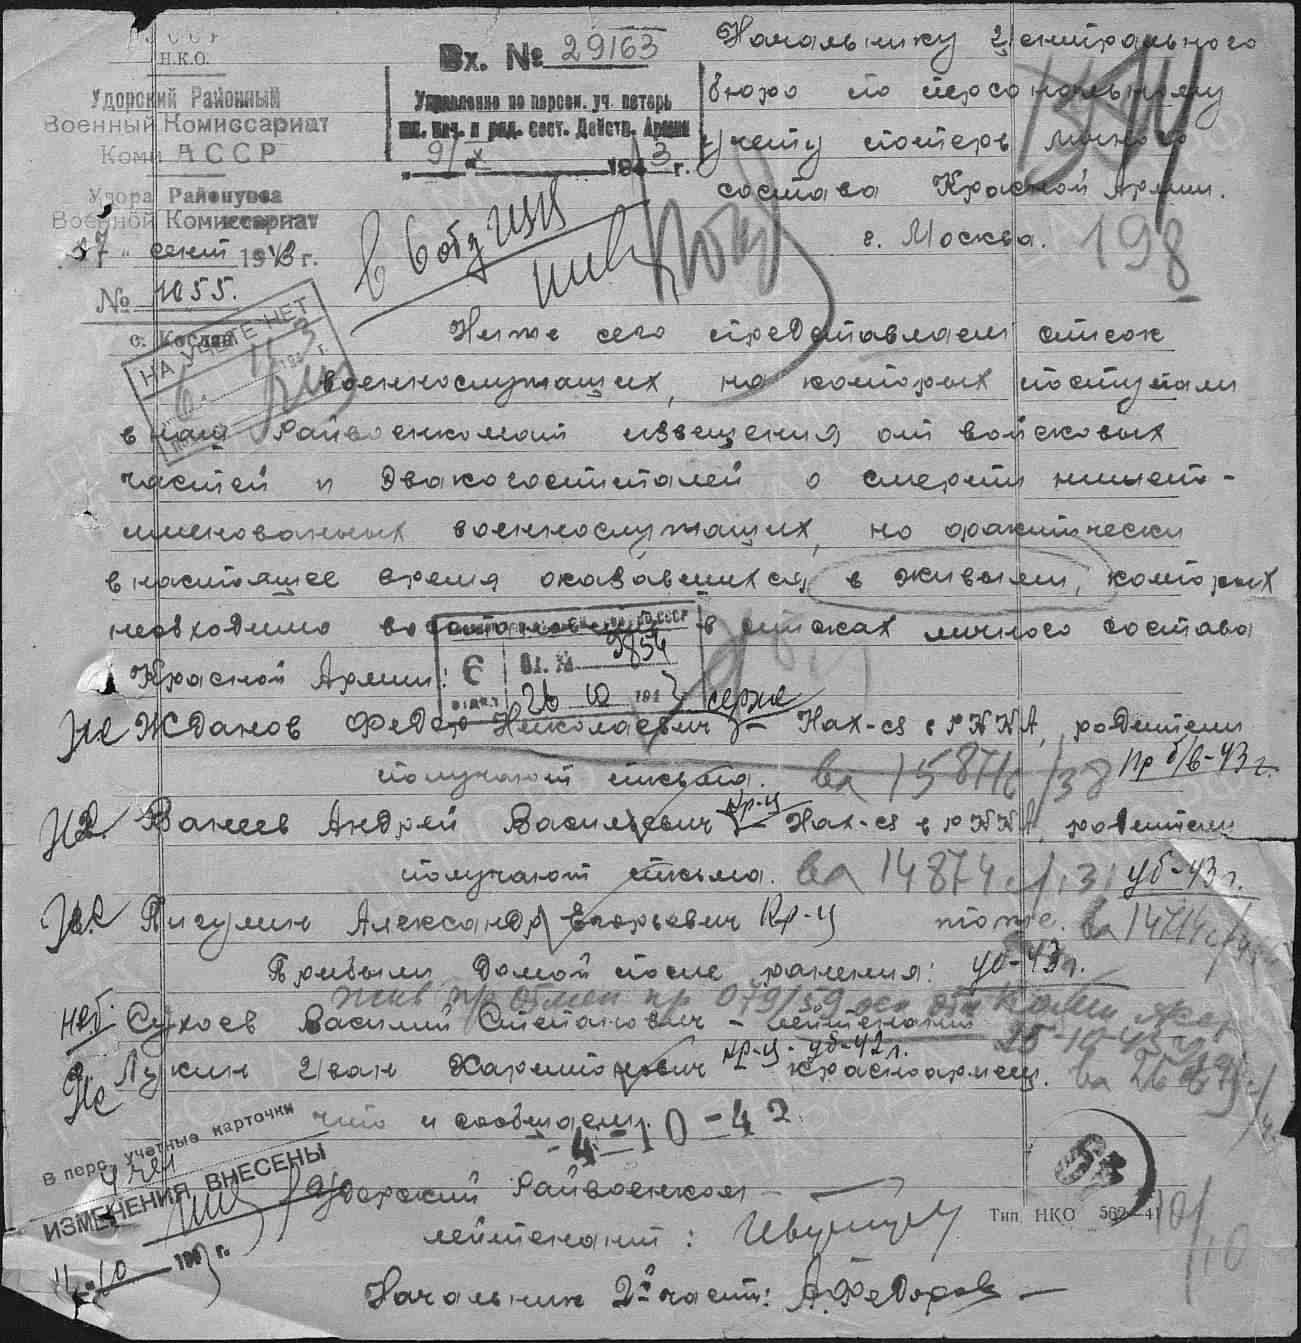 Н.К.О.
Удорский Районный
Военный Комиссариат
Коми АССР
Удора Районувса
Военной Комиссариат
" сент 1943 г.
№ 1055.
с. Кослан
Вх. № 29163
Управление по персон. уч. потерь
мл. нач. и ряд. сост. Действ. Армии
9/X 1943 г.
Начальнику Центрального
бюро по персональному
учету потерь личного
состава Красной Армии.
г. Москва.
198
в 6 отд
НА УЧЕТЕ НЕТ
Ниже сего представляем список
военнослужащих, на которых поступали
в наш Райвоенкомат извещения от войсковых
частей и эвакогоспиталей о смерти ниже по-
именованных военнослужащих, но фактически
в настоящее время оказавшихся в живыми, которых
необходимо восстановить в списках личного состава
Красной Армии:
6
отдел
Вх. № 9854
26 10 1943
Не Жданов Федор Николаевич серж – Нах-ся в РККА, родители
получают письма. вх 15871с/38 Пр б/в-43 г.
Не Ванеев Андрей Васильевич кр-ц – Нах-ся в РККА, родители
получают письма. вх 14874с/31 уб-43 г.
Не Пигулин Александр Егорьевич Кр-ц тоже. вх 14714с
Прибыли домой после ранения: уб-43 г.
жив пр отмен пр 079/59
неб. Сухоев Василий Степанович – лейтенант 25-10-43 г.
Не Лукин Иван Харитонович кр-ц. уб-42 г. красноармеец.
что и сообщаем.
4-10-42
В перс. учетные карточки
ИЗМЕНЕНИЯ ВНЕСЕНЫ
11-10 1943 г.
Удорский Райвоенком –
лейтенант:
Тип НКО 562–41
10/10
Начальник 2й части: А.Федоров